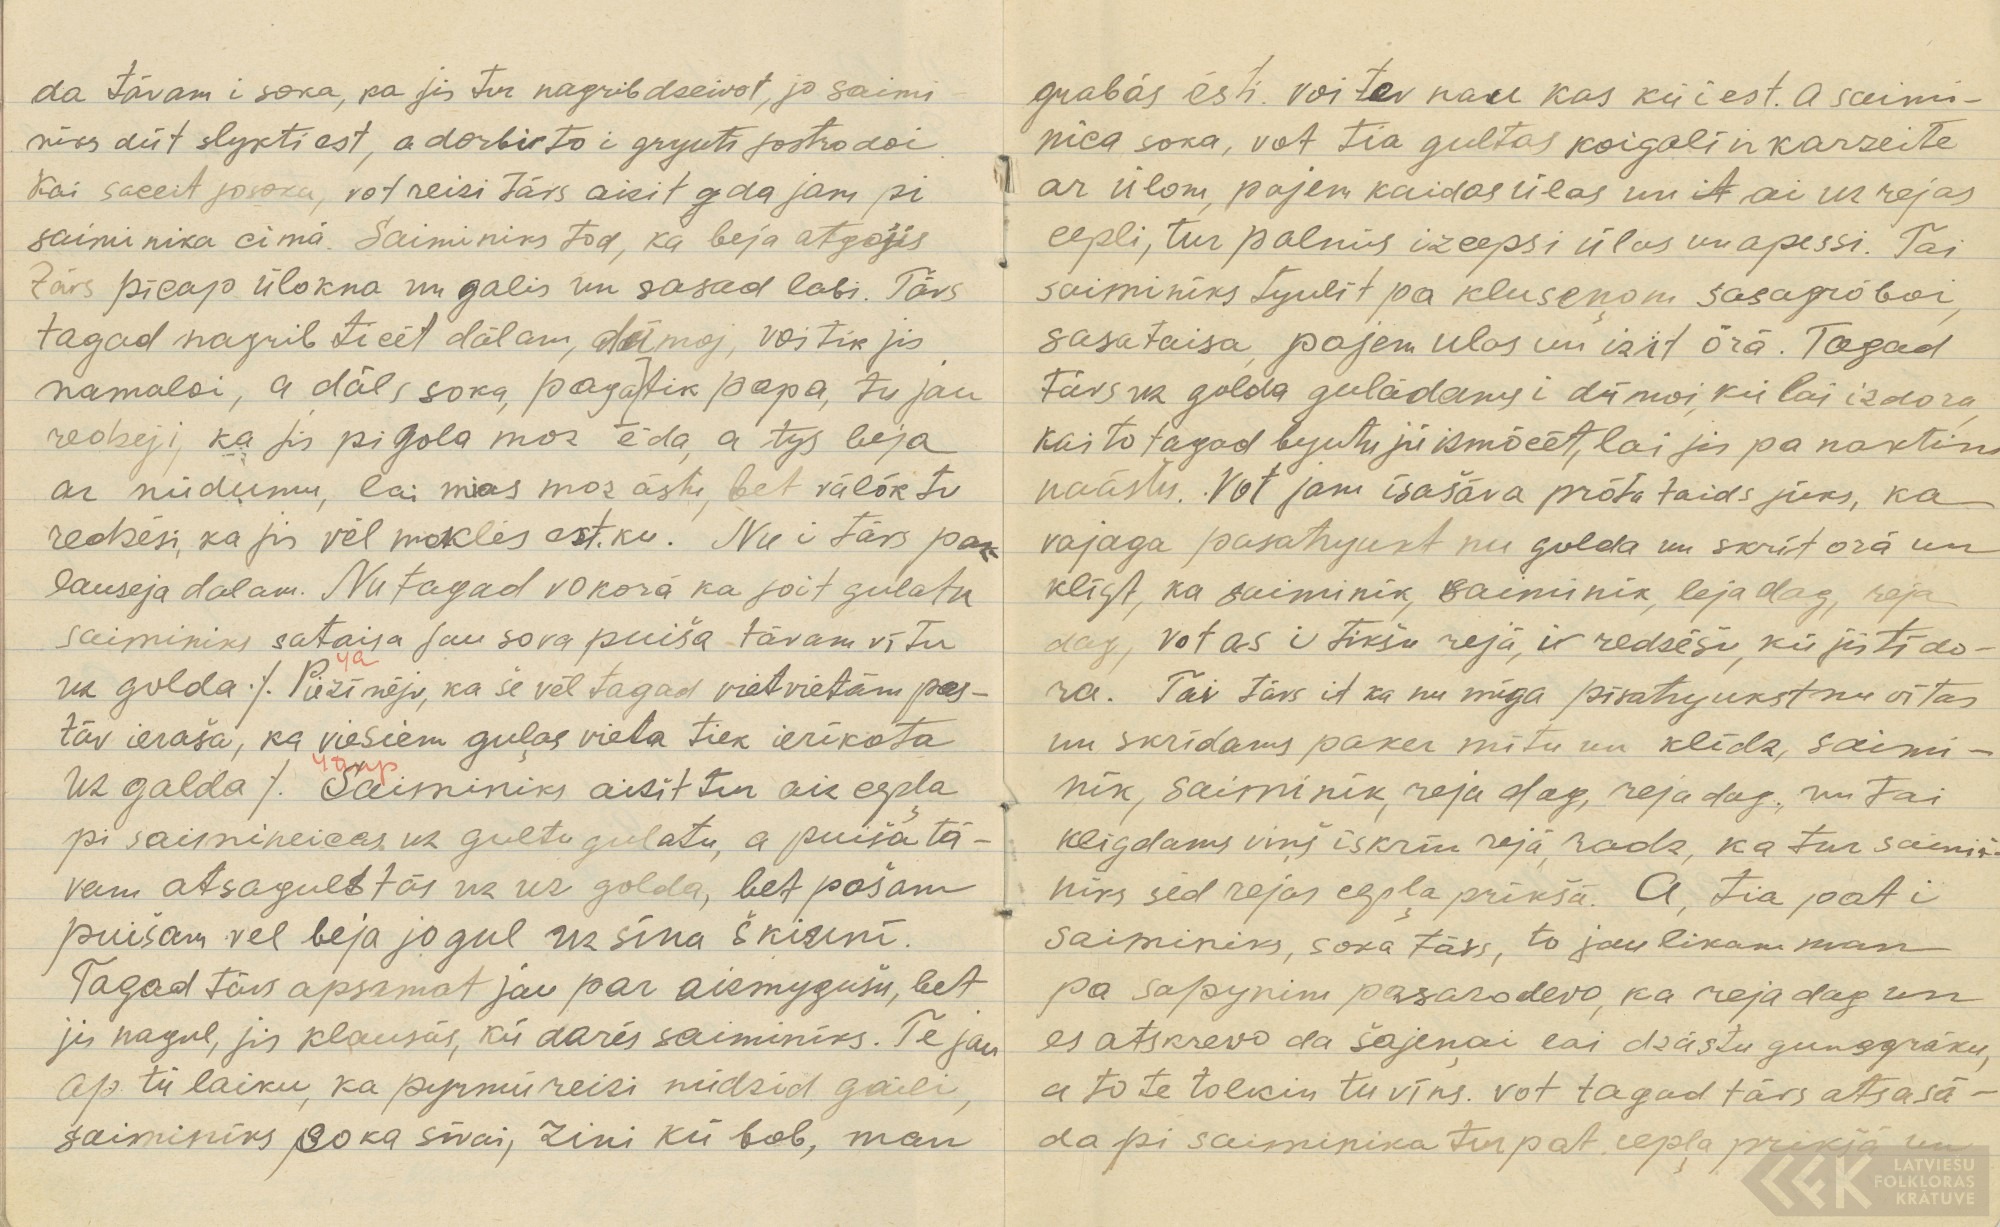 da tāvam i soka, ka jis tur nagrib dzeivot, jo saimi-
niks dūt slykti est, a dorbi to i gryuti jostrodoi
Kai saceit josoka, vot reizi tārs aizit gda jam pi
saiminika cimā. Saiminiks tod, ka beja atgojis
tārs pīcap ūlokna un galis un sasad labi. Tārs
tagad nagrib ticēt dālam, dūmoj, voi tik jis
namaloi, a dāls soka, pagatik papa, tu jau
redzeji, ka jis pi gola moz ēda, a tys beja
ar nūdumu, lai mias moz āstu, bet vālōk tu
redzēsi, ka jis vēl moklēs est. ku. Nu i tārs pak
lauseja dalam. Nu tagad vokorā ka joit gulatu
saiminiks sataisa jau sova puiša tāvam vītu
uz golda ./. Piezīmēju, ka še vēl tagad vietvietām pas-
tāv ieraša, ka viesiem guļas vieta tiek ierīkota
uz galda /. Saiminiks aizit tur aiz cepļa
pi saimineicas uz gultu gulatu, a puiša tā-
vam atsagulstās uz uz golda, bet pošam
puišam vel beja jo gul uz sīna škiunī.
Tagad tārs apsamat jau par aizmygušu, bet
jis nagul, jis klausās, kū darēs saiminīks. Te jau
ap tū laiku, ka pyrmū reizi nūdzid gaili,
saiminīks soka sīvai, zini kū bob, man
grabās ēsti. voi tev nau kas kū iest. A saimi-
nica soka, vot tia gultas koigali ir karzeite
ar ūlom, pajem kaidas ūlas un it ai uz rejas
cepli, tur palnūs izcepsi ūlas un apessi. Tai
saiminīks tyulit pa kluseņom sasagrōboi,
sasataisa, pajem ulas un izit ōrā. Tagad
tārs uz golda gulādams i dūmoi, kū lai izdora,
kai to tagad byutu jū izmōcēt, lai jis pa naktim
naāstu. Vot jam īsašāva prōtu taids jūks, ka
vajaga pasatryukt nu golda un skrīt orā un
kligt, ka saiminik, saiminik, reja dag, reja
dag, vot as i tikšu rejā, ir redzēšu, kū jis tī do-
ra. Tai tārs it ka nu mīga pīsatryukst nu vītas
un skrīdams paker mītu un klīdz, saimi-
nīk, saiminīk, reja dag, reja dag, un tai
kligdams viņš īskrīn rejā, radz, ka tur saimi-
niks sēd rejas cepļa prīkšā. A, tia pat i
saiminīks, soka tārs, to jau likam man
pa sapynim pazarodevo, ka reja dag un
es atskrevo da šajeņai lai dzāstu gunsgrāku,
a to te tolkiu tu vīns. vot tagad tārs atsasā-
da pi saiminika turpat cepļa prīkšā un
LATVIEŠU
FOLKLORAS
KRĀTUVE